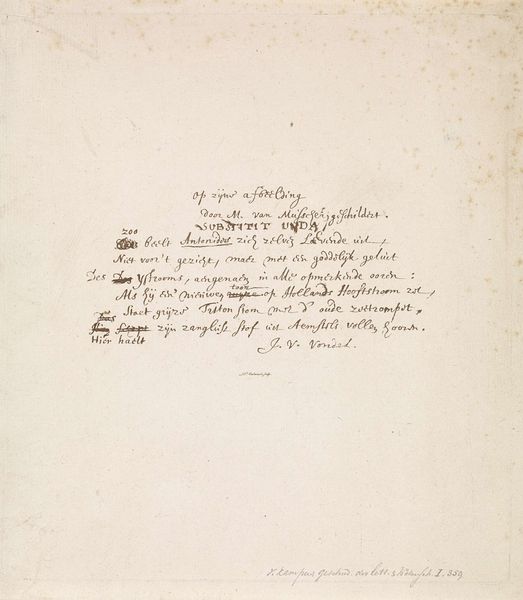 op zijne afbeelding
door M. van Musscher, geschildert.
SUBSTITIT UNDA,
zoo
beelt Antonides zich zelven Levende uit,
Niet voor 't gezicht, maer met een goddelijk geluit
Des Ystrooms, aengenaem in alle opmerkende ooren:
toon
Als hij een nieuwen op Hollands Hooftstroom zet,
Staet grijze Triton stom met d' oude zeetrompet,
zijn zanglust stof uit Aemstels vollen hooren.
Hier haelt
J. V. Vondel.
V. Kampen Gesch. der lett. & Wetensch. I. 359